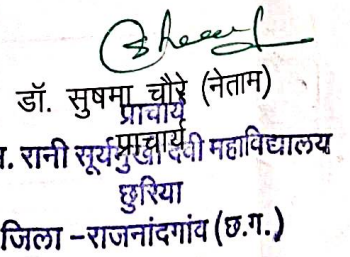 डॉ. सुषमा चौरे (नेताम)
प्राचार्य
प्राचार्य
. रानी सूर्यमुखी देवी महाविद्यालय
छुरिया
जिला –राजनांदगांव (छ.ग.)